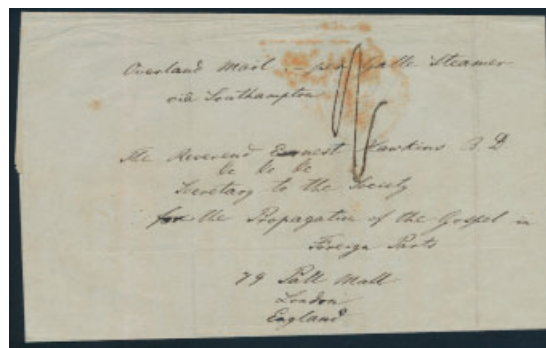 Overland Mail - per Galle Steamer
via Southampton
The Reverend Ernest Hawkins B.D.
&c &c &c
Secretary to the Society
for the Propagation of the Gospel in
Foreign Parts
79 Pall Mall
London
England